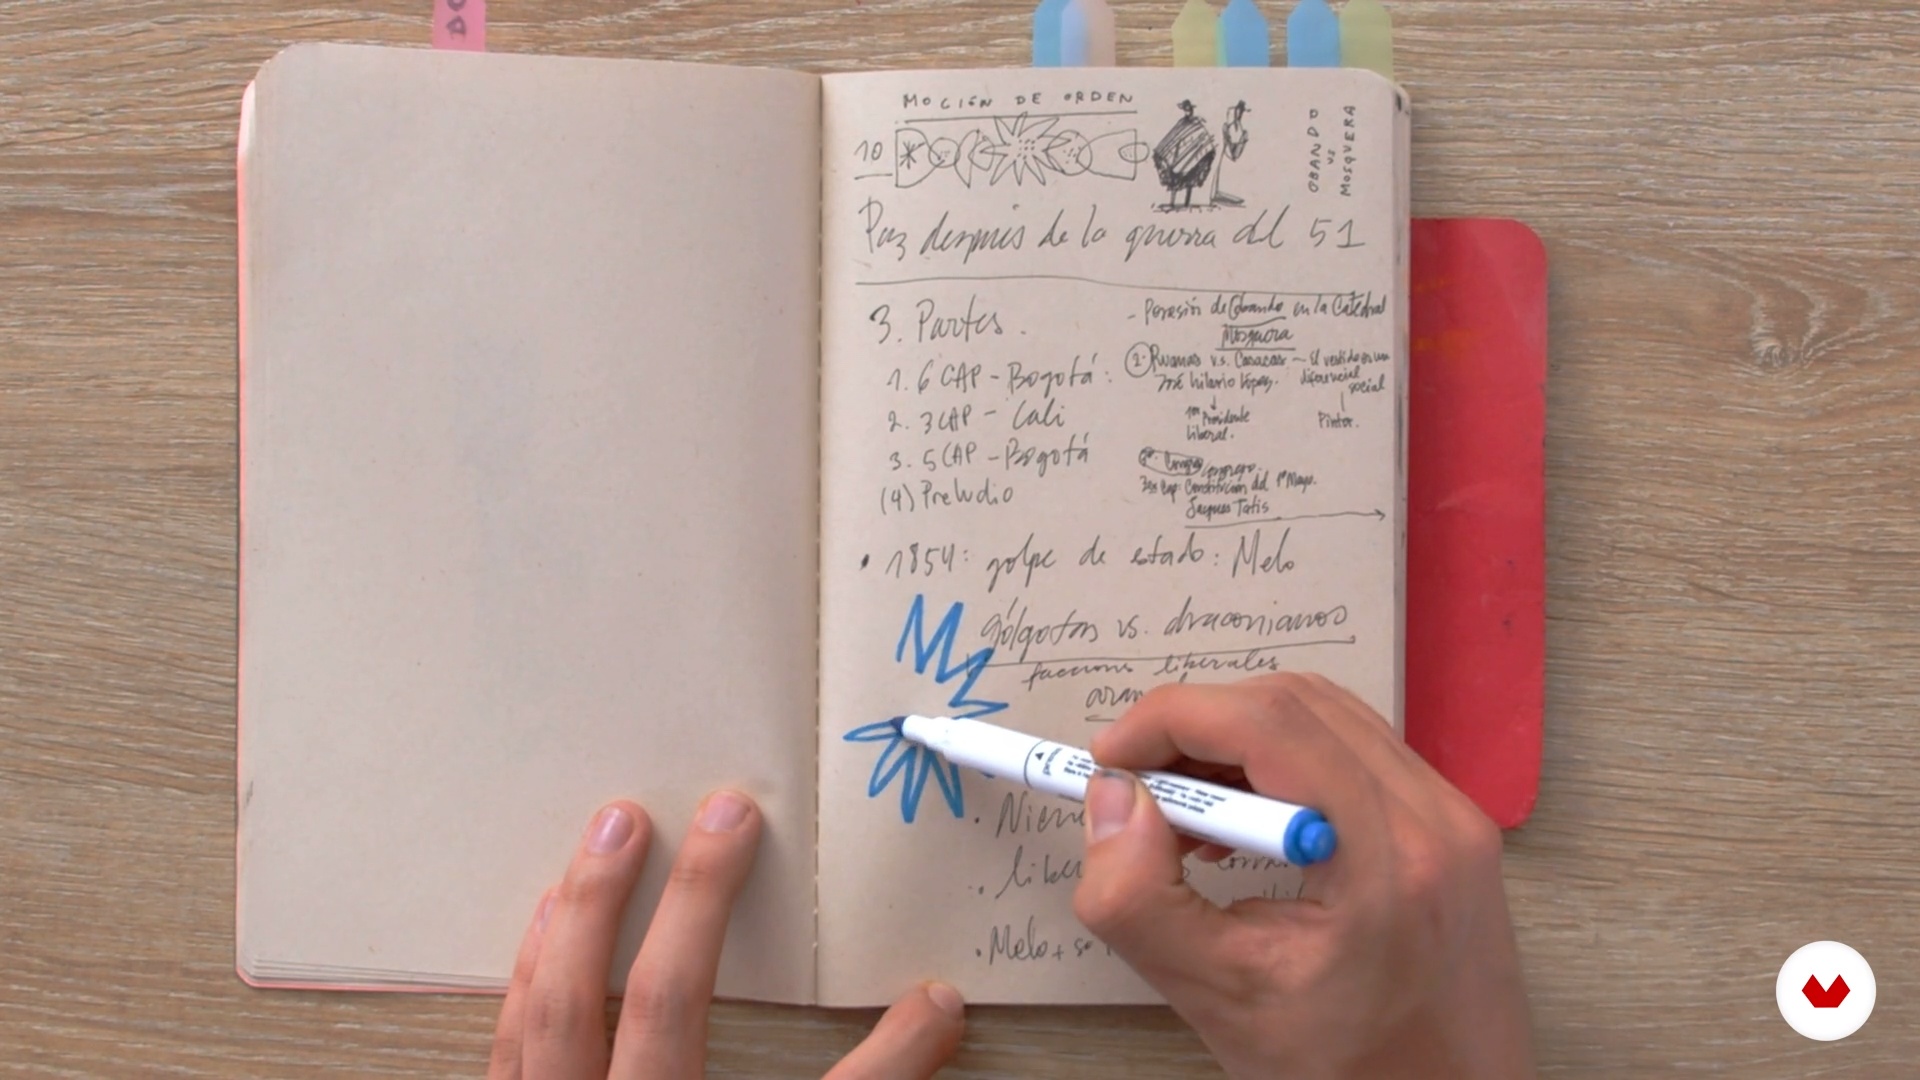 MOCIÓN DE ORDEN
10
OBANDO
vs
MOSQUERA
Paz después de la guerra del 51
3. Partes.
1. 6 CAP - Bogotá:
2. 3 CAP - Cali
3. 5 CAP - Bogotá
(4) Preludio
- Posesión de Obando en la Catedral
Mosquera
2. Ruanas v.s. Casacas - El vestido es un
diferencial
social
José Hilario López.
1er Presidente
liberal.
Pintor.
Congreso
3er Cap: Constitución del 1º Mayo.
Jacques Tatis
• 1854: golpe de estado: Melo
gólgotas vs. draconianos
facciones liberales
• Melo +